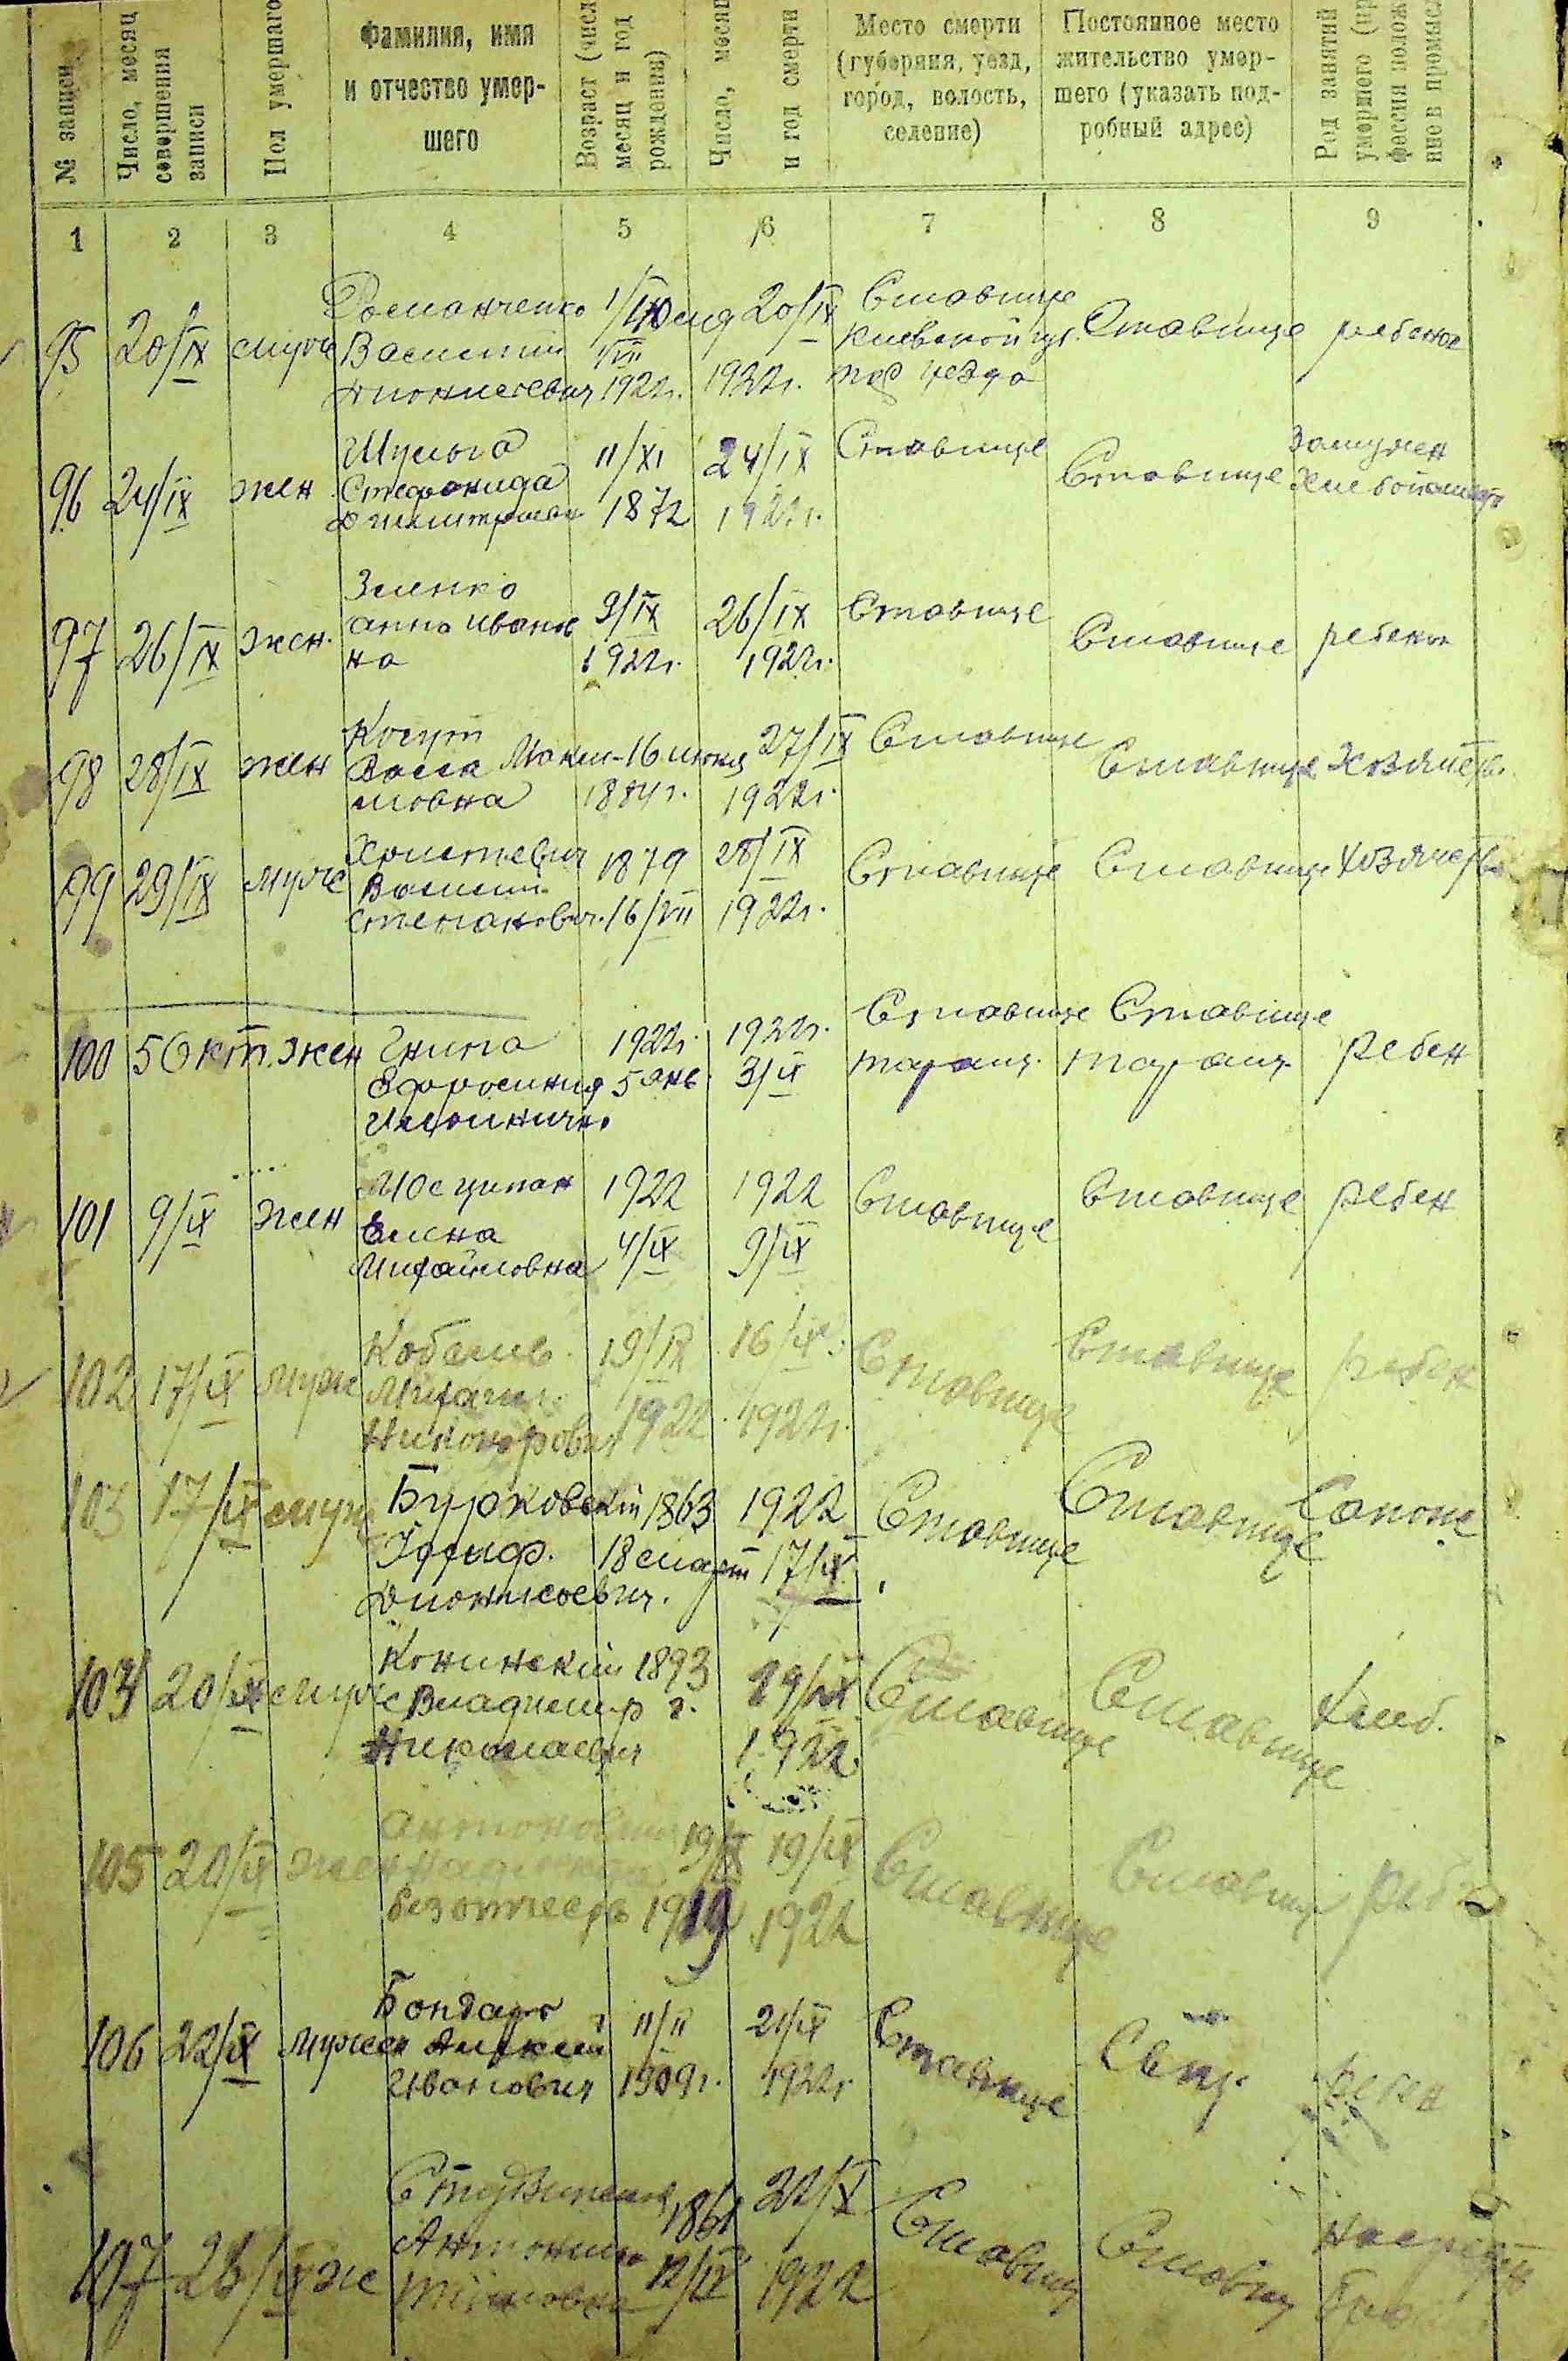 № записи
Число, месяц
совершения
записи
Пол умершаго
Фамилия, имя
и отчество умер-
шего
Возраст (числ
месяц и год
рождения)
Число, месяц
и год смерти
Место смерти
(губерния, уезд,
город, волость,
селение)
Постоянное место
жительство умер-
шего (указать под-
робный адрес)
Род занятий
умершего (пр
фессия полож
ние в промысл
1 2 3 4 5 6 7 8 9
95 20/IX муж
Романченко
Василий
Дионисевич
1/VII
1922г.
20/IX
1922г.
Ставище
Киевской гу.
уезда
Ставище
ребенок
96 24/IX жен
Шульга
Стефанида
Димитриевн
11/XI
1872
24/IX
1922г.
Ставище
Ставище
Замужем
97 26/IX жен.
Зленко
Анна Иванов
на
9/IX
1922г.
26/IX
1922г.
Ставище
Ставище
ребенок
98 28/IX жен
Когут
Васса Макси-
мовна
16 июня
1884г.
27/IX
1922г.
Ставище
Ставище
Хозяйств.
99 29/IX муж
Христевич
Василий
Степанович
1879
16/VII
28/IX
1922г.
Ставище
Ставище
Хозяйств
100 5 Окт. жен
Ефросиния
1922г.
5 янв.
1922г.
3/IX
Ставище
таращ.
Ставище
таращ.
ребен
101 9/IX жен
Елена
Михайловна
1922
4/IX
1922
9/IX
Ставище
Ставище
ребен
102 17/IX муж
Кобелив
Михаил
Никонорович
19/IX
1922
16/IX
1922г.
Ставище
Ставище
ребен
103 17/IX муж
Бурковский
Дионисоевич.
1863
18 март
1922
17/IX
Ставище
Ставище
Сапож
104 20/IX муж
Конинский
Владимир
Николаевич
1893
г.
19/IX
1922
Ставище
Ставище
Хлеб.
105 20/IX жен
без отчеств
19/IX
1919
19/IX
1922
Ставище
Ставище
106 22/IX мужск
Бондарь
Алексей
Иванович
11/II
1909г.
21/IX
1922г.
Ставище
ребен
107 23/IX же
Антонина
1861
12/IX
22/IX
1922
Ставищ
Ставищ